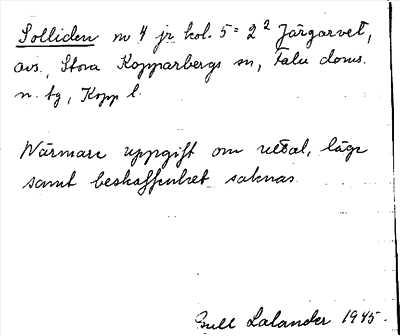 Solliden nr 4 jr kol. 5 = 2² Järgarvet,
avs., Stora Kopparbergs sn, Falu doms.
n. tg, Kopp l.
Närmare uppgift om uttal, läge
samt beskaffenhet saknas.
Gull Lalander 1945.